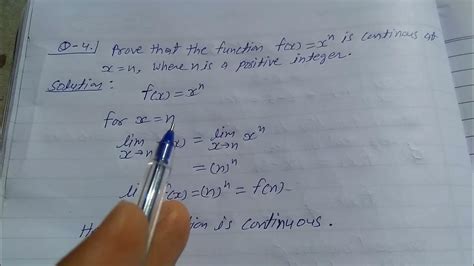 Q-4.) Prove that the function f(x) = xⁿ is continous at
x=n, where n is a positive integer.
Solution:
f(x) = xⁿ
for x = n
lim x→n (x) = lim x→n xⁿ
= (n)ⁿ
f(x) = (n)ⁿ = f(n)
is continuous.